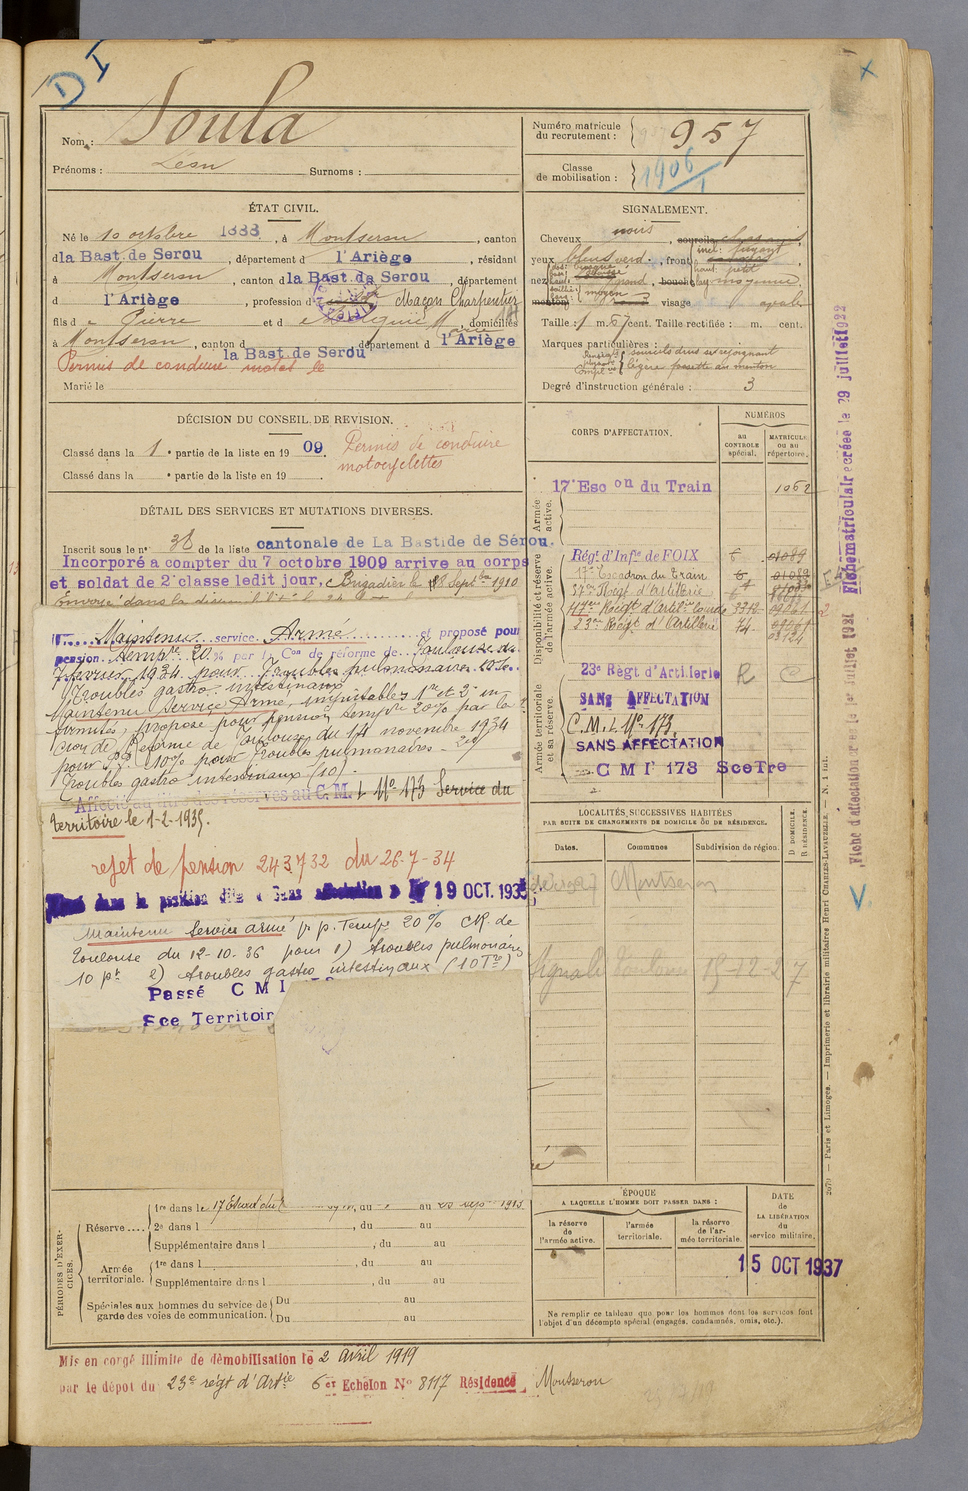 D I
Nom : Soula
Prénoms : Léon Surnoms :
Numéro matricule du recrutement : 957
Classe de mobilisation : 1906
ÉTAT CIVIL.
Né le 10 octobre 1888, à Montseron, canton
d la Bast. de Serou, département d l'Ariège, résidant
à Montseron, canton d la Bast. de Serou, département
d l'Ariège, profession d Maçon Charpentier
fils de Pierre et de Marie, domiciliés
à Montseron, canton d la Bast. de Serou, département d l'Ariège
Permis de conduire
Marié le
SIGNALEMENT.
Cheveux noirs, sourcils
yeux bleus verd., front incl: fuyant haut: petit
nez moyen, bouche moyenne
menton visage ovale
Taille : 1 m. 67 cent. Taille rectifiée : m. cent.
Marques particulières : sourcils drus se rejoignant
légère fossette au menton
Degré d'instruction générale : 3
DÉCISION DU CONSEIL DE REVISION.
Classé dans la 1e partie de la liste en 1909.
Classé dans la e partie de la liste en 19
Permis de conduire
motocyclettes
DÉTAIL DES SERVICES ET MUTATIONS DIVERSES.
Inscrit sous le n° 38 de la liste cantonale de La Bastide de Sérou.
Incorporé a compter du 7 octobre 1909 arrive au corps
et soldat de 2e classe ledit jour, Brigadier le Septbre 1910
Maintenu service Armé et proposé pour
pension temp're 20 % par la Con de réforme de Toulouse du
1934 pour Troubles pulmonaires
Troubles gastro-intestinaux
Maintenu Service Armé,
firmités, proposé pour pension temp're 20% par la
Cion de Réforme de Toulouse du 14 novembre 1934
pour 10% pour Troubles pulmonaires - 2°
Troubles gastro intestinaux (10).
Affecté au C. M. I. N° 173 Service du
territoire le 1-2-1935.
rejet de pension 243732 du 26-7-34
dans la position dite « Sans affectation » le 19 OCT. 1935
Maintenu Service armé p. p. Temp're 20% CR de
Toulouse du 12-10-36 pour 1) troubles pulmonaires
10 pt 2) troubles gastro intestinaux (10 )
Passé C M I
Sce Territoir
CORPS D'AFFECTATION.
NUMÉROS
au CONTROLE spécial.
MATRICULE OU AU répertoire.
Armée active.
17e Escon du Train 1062
Disponibilité et réserve de l'armée active.
Régt d'Infie de FOIX 6 01089
17e Escadron du Train 6 01089
57e Régt d'Artillerie
117e Régt d'Artil'ie lourde
23e Régt d'Artillerie 74 03124
Armée territoriale et sa réserve.
23e Règt d'Artilerie R
SANS AFFECTATION
C. M. I. N° 173
SANS AFFECTATION
C M I' 173 Sce Tre
LOCALITÉS SUCCESSIVES HABITÉES
PAR SUITE DE CHANGEMENTS DE DOMICILE OU DE RÉSIDENCE.
Dates. Communes Subdivision de région. D DOMICILE. R RÉSIDENCE.
Montseron
Signalé Toulouse 15-12-27
ÉPOQUE
A LAQUELLE L'HOMME DOIT PASSER DANS :
la réserve de l'armée active.
l'armée territoriale.
la réserve de l'armée territoriale.
DATE DE LA LIBÉRATION du service militaire.
15 OCT 1937
Ne remplir ce tableau que pour les hommes dont les services font
l'objet d'un décompte spécial (engagés, condamnés, omis, etc.).
PÉRIODES D'EXERCICES.
Réserve .... 1re dans le 17 Escad du au sep 1913
2e dans l , du au
Supplémentaire dans l , du au
Armée territoriale. 1re dans l du au
Supplémentaire dans l , du au
Spéciales aux hommes du service de garde des voies de communication. Du au
Du au
Mis en congé illimité de démobilisation le 2 avril 1919
par le dépot du 23e régt d'Artie 6e Echelon N° 8117 Résidence Montseron
2670 — Paris et Limoges. — Imprimerie et librairie militaires Henri CHARLES-LAVAUZELLE. — N. 1 int.
Fiche d'affectation créée le 1er juillet 1921
Fiche matriculaire créée le 29 juillet 1922